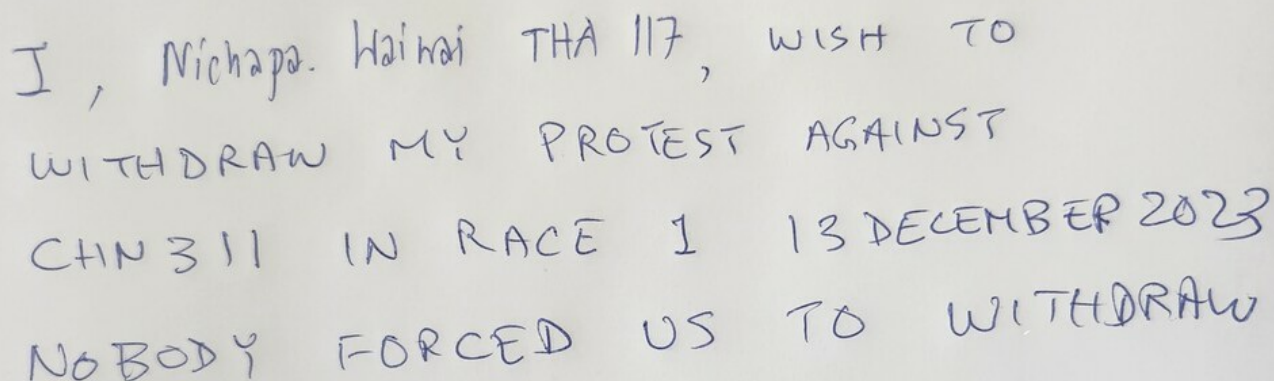 I, Nichapa. Waiwai THA 117, WISH TO
WITHDRAW MY PROTEST AGAINST
CHN 311 IN RACE 1 13 DECEMBER 2023
NOBODY FORCED US TO WITHDRAW